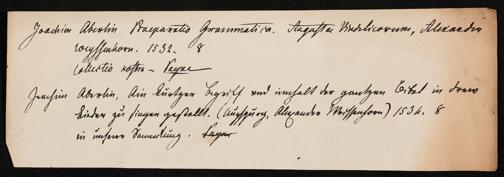 Joachim Aberlin Praeparatio Grammatica. Augustae Vindelicorum, Alexander
weyssenhorn. 1532. 8
Collectio nostra – Payne
Joachim Aberlin, Ain kurtzer begriff und innhalt der gantzen Bibel in drew
Lieder zu singen gestellt. (Augspurg, Alexander Weissenhorn) 1534. 8
in unserer Sammlung.